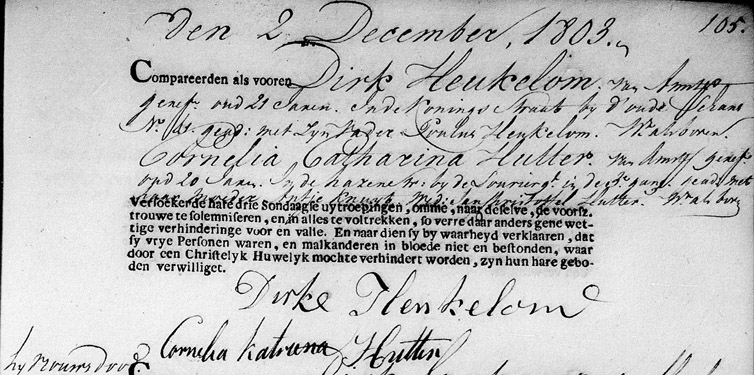 den 2 December, 1803. 105.
Compareerden als vooren Dirk Heukelom. van Amstm
geref: oud 21 Jaren. In de Konings Straat by d'oude
No. geads: met Zyn Vader Heukelom. Wt als boven.
Cornelia Catharina Hutter. van Amstm geref
oud 20 Jaren. in de geads met
Hutter. Wt als boven
Versoekende hare drie Sondaagse uytroepingen, omme, naar deselve, de voorsz.
trouwe te solemniseren, en, in alles te voltrekken, so verre daar anders gene wet-
tige verhinderinge voor en valle. En naar dien sy by waarheyd verklaaren, dat
sy vrye Personen waren, en malkanderen in bloede niet en bestonden, waar
door een Christelyk Huwelyk mochte verhindert worden, zyn hun hare gebo-
den verwilliget.
Dirk Heukelom
Cornelia Hutter